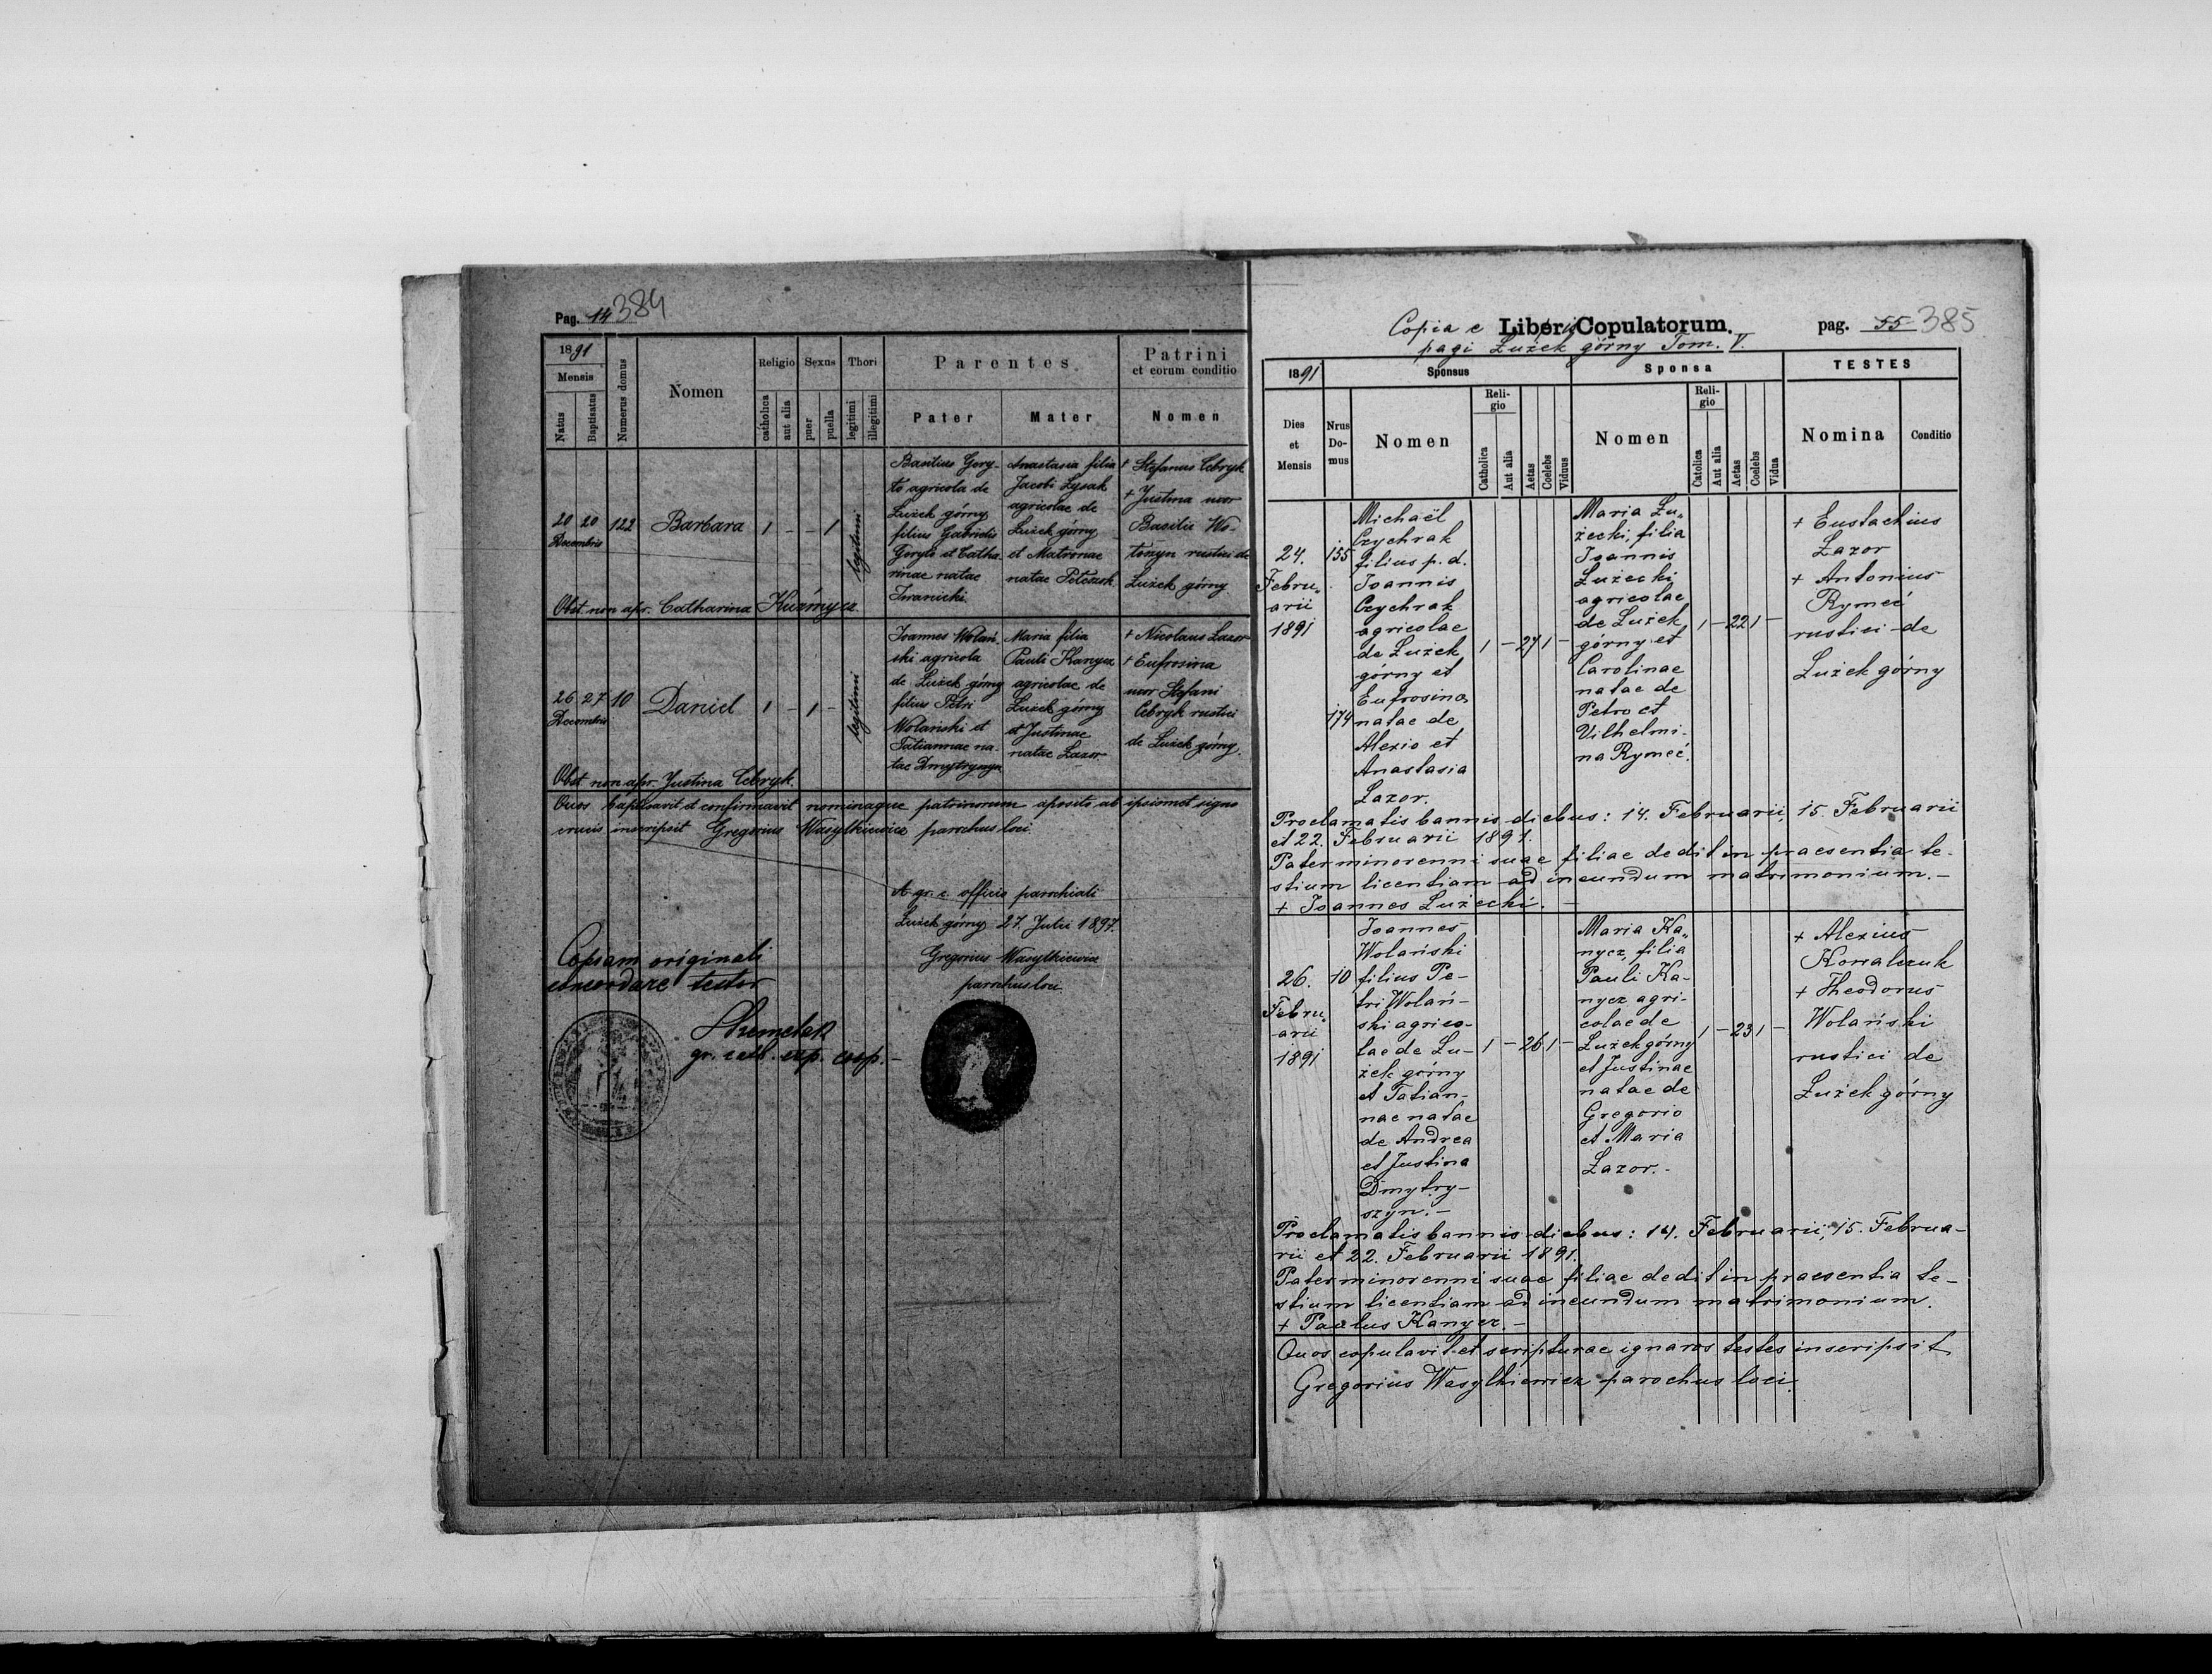 Pag. 14 384
1891
Mensis
Natus
Baptisatus
Numerus domus
Nomen
Religio
catholica
aut alia
Sexus
puer
puella
Thori
legitimi
illegitimi
Parentes
Pater
Mater
Patrini
et eorum conditio
Nomen
20 20
Decembris
122
Barbara
1 - - 1
legitimi
Basilius Gery-
to agricola de
Łużek górny
filius Gabrielis
Geryto et Catha-
rinae natae
Iwanicki
Anastasia filia
Jacobi Łysak
agricolae de
Łużek górny
et Matronae
natae
+ Stefanus Cebryk
+ Justina uxor
Basilii Wo-
toszyn rustici de
Łużek górny
Obst. non apr. Catharina Kuźmycz
26 27
Decembris
10
Daniel
1 - 1 -
legitimi
Joannes Wolań-
ski agricola
de Łużek górny
filius Petri
Wolański et
Tatiannae na-
tae Dmytryszyn
Maria filia
Pauli Kanycz
agricolae de
Łużek górny
et Justinae
natae Łazor
+ Nicolaus Łazor
+ Eufrosina
uxor Stefani
Cebryk rustici
de Łużek górny.
Obst. non apr. Justina Cebryk.
Quos baptisavit et confirmavit nominaque patrinorum aposito ab ipsismet signo
crucis inscripsit Gregorius Wasylkiewicz parochus loci.
A gr. c. officio parochiali
Łużek górny 27. Julii 1897.
Gregorius Wasylkiewicz
parochus loci.
Copiam originali
concordare testor
gr. cath. exp. coop.
Copia e Liber Copulatorum.
pag. 55 385
pagi Łużek górny Tom. V.
1891
Dies
et
Mensis
Nrus
Do-
mus
Sponsus
Nomen
Reli-
gio
Catholica
Aut alia
Aetas
Coelebs
Viduus
Sponsa
Nomen
Reli-
gio
Catolica
Aut alia
Aetas
Coelebs
Vidua
TESTES
Nomina
Conditio
24.
Febru-
arii
1891
155
174
Michaël
Czychrak
filius p. d.
Joannis
Czychrak
agricolae
de Łużek
górny et
Eufrosina
natae de
Alexio et
Anastasia
Łazor.
1 - 27 1 -
Maria Łu-
żecki, filia
Joannis
Łużecki
agricolae
de Łużek
górny et
Carolinae
natae de
Petro et
Vilhelmi-
na Rymeć.
1 - 22 1 -
+ Eustachius
Łazor
+ Antonius
Rymeć
rustici de
Łużek górny
Proclamatis bannis diebus: 14. Februarii, 15. Februarii
et 22. Februarii 1891.
Pater minorenni suae filiae dedit in praesentia te-
stium licentiam ad ineundum matrimonium. -
+ Joannes Łużecki. -
26.
Febru-
arii
1891
10
Joannes
Wolański
filius Pe-
tri Wolań-
ski agrico-
lae de Łu-
żek górny
et Tatian-
nae natae
de Andrea
et Justina
Dmytry-
szyn. -
1 - 26 1 -
Maria Ka-
nycz, filia
Pauli Ka-
nycz agri-
colae de
Łużek górny
et Justinae
natae de
Gregorio
et Maria
Łazor. -
1 - 23 1 -
+ Alexius
Kowalczuk
+ Theodorus
Wolański
rustici de
Łużek górny
Proclamatis bannis diebus: 14. Februarii, 15. Februa-
rii et 22. Februarii 1891.
Pater minorenni suae filiae dedit in praesentia te-
stium licentiam ad ineundum matrimonium.
+ Paulus Kanycz. -
Quos copulavit et scripturae ignaros testes inscripsit
Gregorius Wasylkiewicz parochus loci.